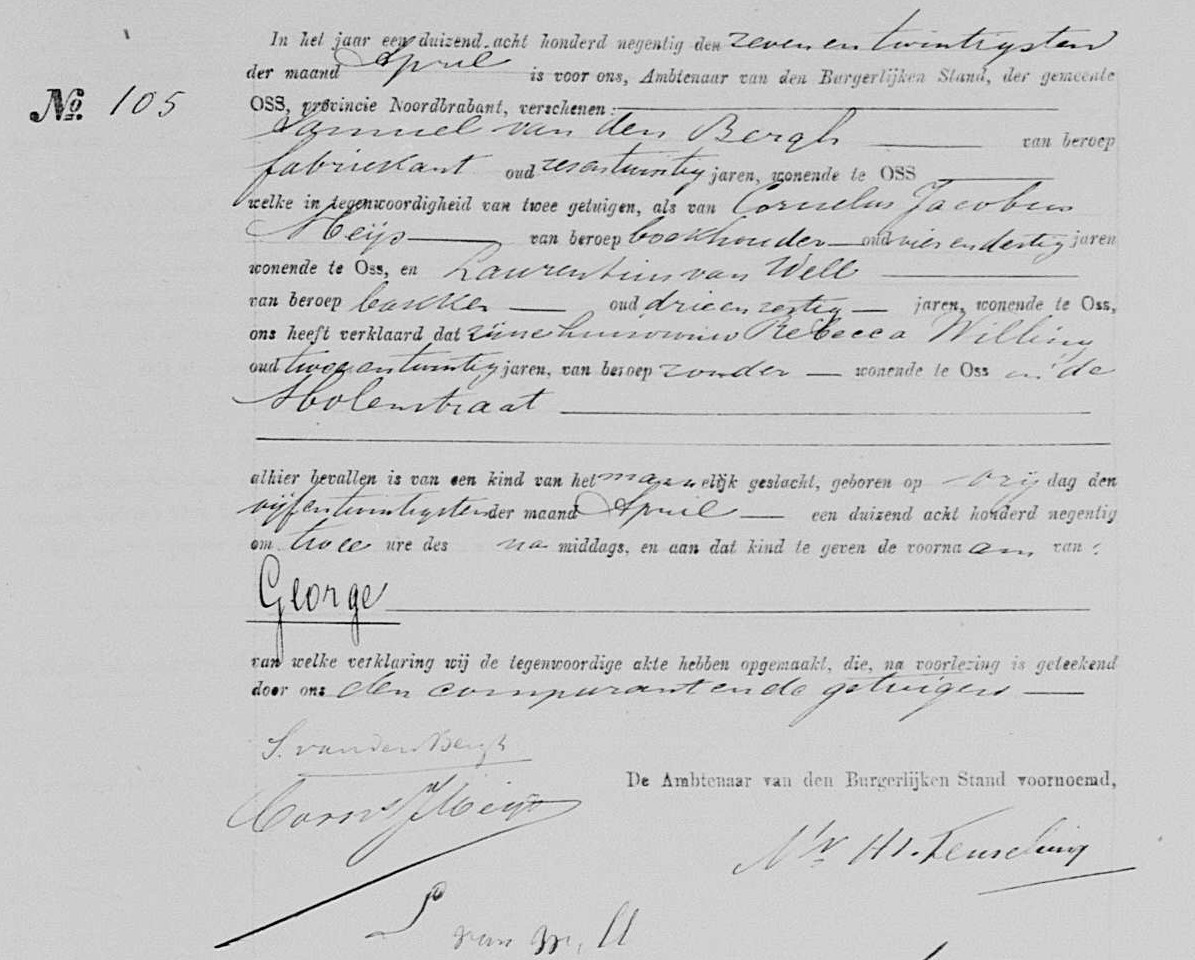 In het jaar een duizend acht honderd negentig den zeven en twintigsten
der maand April is voor ons, Ambtenaar van den Burgerlijken Stand, der gemeente
No. 105
OSS, provincie Noordbrabant, verschenen:
Samuel van den Bergh van beroep
fabriekant oud zesentwintig jaren, wonende te OSS
welke in tegenwoordigheid van twee getuigen, als van Cornelus Jacobus
Meijs van beroep boekhouder oud vier en dertig jaren
wonende te Oss, en Laurentius van Well
van beroep bakker oud drieenzestig jaren, wonende te Oss,
ons heeft verklaard dat zijne huisvrouw Rebecca Willing
oud tweeentwintig jaren, van beroep zonder wonende te Oss in de
Molenstraat
alhier bevallen is van een kind van het mannelijk geslacht, geboren op vrijdag den
vijfentwintigsten der maand April een duizend acht honderd negentig
om twee ure des na middags, en aan dat kind te geven de voornaam van:
George
van welke verklaring wij de tegenwoordige akte hebben opgemaakt, die, na voorlezing is geteekend
door ons den comparant en de getuigen
S. van den Bergh
De Ambtenaar van den Burgerlijken Stand voornoemd,
Corns J Meijs
L van Well